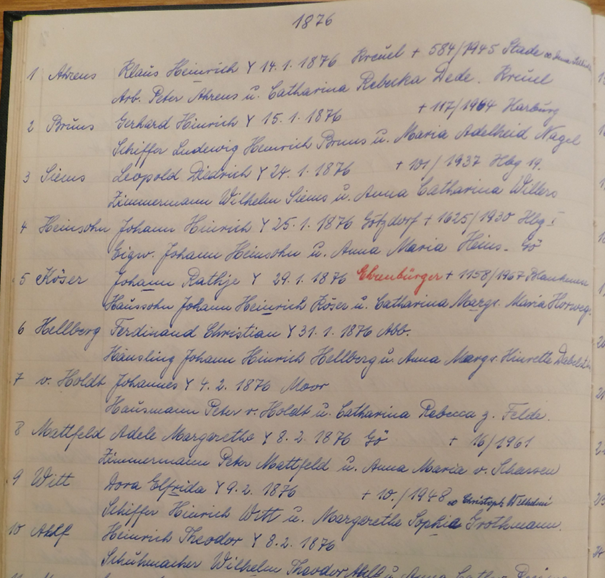 1876
1 Ahrens Klaus Heinrich Y 14.1.1876 Kreuel + 584/1945 Stade
Arb. Peter Ahrens u. Catharina Rebecka Dede. Kreuel
2 Bruns Gerhard Hinrich Y 15.1.1876 + 117/1964 Harburg
Schiffer Ludewig Heinrich Bruns u. Maria Adelheid Nagel
3 Siems Leopold Diedrich Y 24.1.1876 + 101/1937 Hbg 19.
Zimmermann Wilhelm Siems u. Anna Catharina Witters
4 Heinsohn Johann Heinrich Y 25.1.1876 Götzdorf + 1625/1930 Hbg I
Eigw. Johann Heinsohn u. Anna Maria Heins. Gö
5 Köser Johann Rathje Y 29.1.1876 Ehrenbürger + 1158/1967 Blankenese
Haussohn Johann Heinrich Köser u. Catharina Margr. Maria
6 Hellberg Ferdinand Christian Y 31.1.1876 Abb.
Häusling Johann Hinrich Hellberg u. Anna Margr. Hinrette
7 v. Holdt Johannes Y 4.2.1876 Moor
Hausmann Peter v. Holdt u. Catharina Rebecca z. Felde.
8 Mattfeld Adele Margarethe Y 8.2.1876 Gö + 16/1961
Zimmermann Peter Mattfeld u. Anna Maria v. Schassen
9 Wett Dora Elfrida Y 9.2.1876 + 10./1948 ∞ Christoph Wilhelmi
Schiffer Heinrich Wett u. Margarethe Sophie Grothmann.
10 Ahlf Heinrich Theodor Y 8.2.1876
Schuhmacher Wilhelm Theodor Ahlf u. Anna